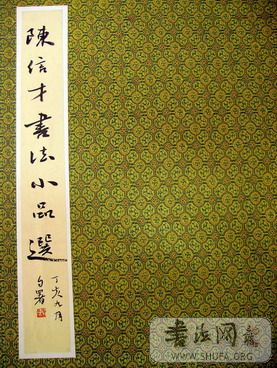 陳信才書法小品選
丁亥九月
自署
书法网
WWW.SHUFA.ORG